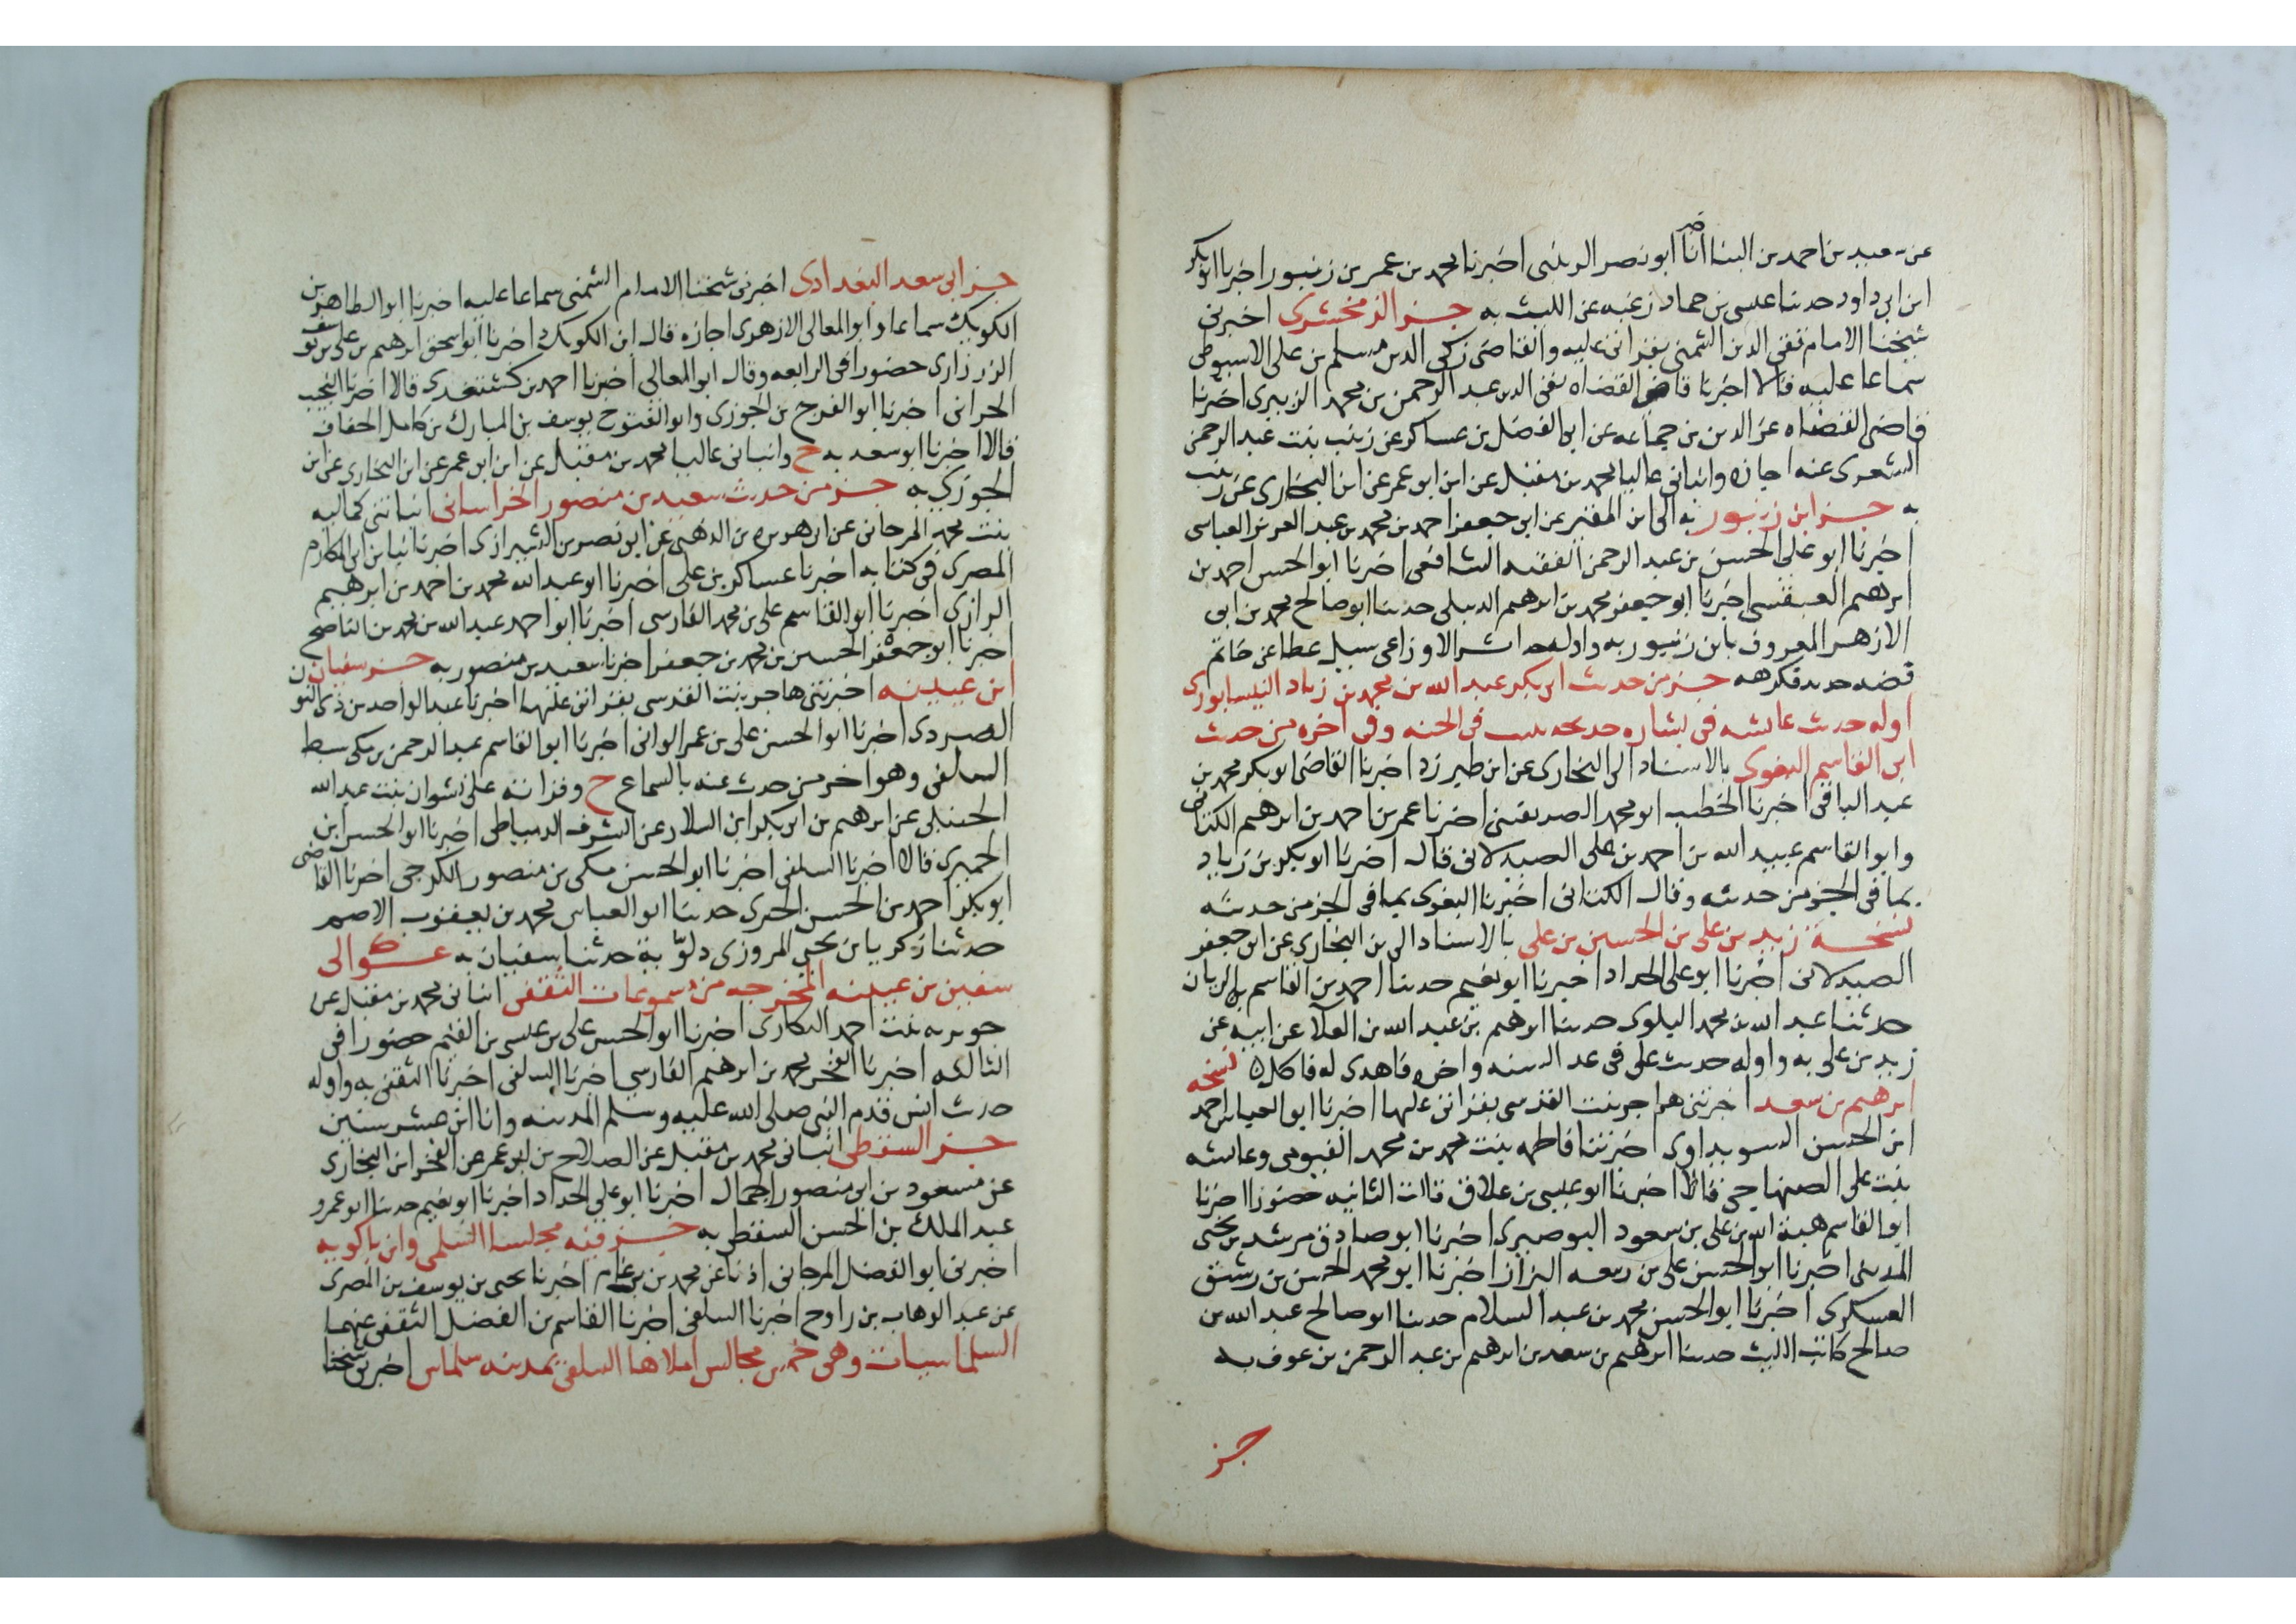 عن سعيد بن احمد بن البنا انا ابو نصر الزينبى اخبرنا محمد بن عمر بن زنبور اخبرنا ابو بكر
ابن ابى داود حدثنا عيسى بن حماد زغبه عن الليث به جز الزمخشرى اخبرنى
شيخنا الامام تقى الدين الشمنى بقراتى عليه والقاضى زكى الدين مسلم بن على الاسيوطى
سماعا عليه قالا اخبرنا قاضى القضاه تقى الدين عبد الرحمن بن محمد الزبيرى اخبرنا
قاضى القضاه عز الدين بن جماعه عن ابى الفضل بن عساكر عن زينب بنت عبد الرحمن
الشعرى عنه اجازه وانبانى عاليا محمد بن مقبل عن ابن ابو عمر عن ابن البخارى عن زينب
به جز ابن زنبور به الى ابن المقير عن ابى جعفر احمد بن محمد بن عبد العزيز العباسى
اخبرنا ابو على الحسن بن عبد الرحمن الفقيه الشافعى اخبرنا ابو الحسن احمد بن
ابرهيم العبقسى اخبرنا ابو جعفر محمد بن ابرهيم الديبلى حدثنا ابو صالح محمد بن ابى
الازهر المعروف بابن زنبور به واوله اثر الاوزاعى سيل عطا عن خاتم
فضه حديد فكرهه جز من حديث ابى بكر عبد الله بن محمد بن زياد النيسابورى
اوله حديث عايشه فى بشاره خديجه ببيت فى الجنه وفى اخره من حديث
ابى القاسم البغوى بالاسناد الى البخارى عن ابن طبرزد اخبرنا القاضى ابو بكر محمد بن
عبد الباقى اخبرنا الخطيب ابو محمد الصريفينى اخبرنا عمر بن احمد بن ابرهيم الكتانى
وابو القاسم عبيد الله بن احمد بن على الصيدلانى قال اخبرنا ابو بكر بن زياد
بما فى الجز من حديثه وقال الكتانى اخبرنا البغوى بما فى الجز من حديثه
نسخة زيد بن على بن الحسين بن على بالاسناد الى بن البخارى عن ابى جعفر
الصيدلانى اخبرنا ابو على الحداد اخبرنا ابو نعيم حدثنا احمد بن القاسم بن الريان
حدثنا عبد الله بن محمد البلوى حدثنا ابرهيم بن عبد الله بن العلا عن ابيه عن
زيد بن على به واوله حديث على فى عد السنه واخره فاهدى له فاكل نسخه
ابرهيم بن سعد اخبرتنى هاجر بنت القدسى بقراتى عليها اخبرنا ابو العباس احمد
ابن الحسن السويداوى اخبرتنا فاطمه بنت محمد بن محمد الفيومى وعايشه
بنت على الصنهاجى قالتا اخبرنا ابو عيسى بن علاق قالت الثانيه حضورا اخبرنا
ابو القاسم هبة الله بن على بن سعود البوصيرى اخبرنا ابو صادق مرشد بن يحيى
المدينى اخبرنا ابو الحسن على بن ربيعه البزاز اخبرنا ابو محمد الحسن بن رشيق
العسكرى اخبرنا ابو الحسن محمد بن عبد السلام حدثنا ابو صالح عبد الله بن
صالح كاتب الليث حدثنا ابرهيم بن سعد بن ابرهيم بن عبد الرحمن بن عوف به
جز
جز ابى سعد البغدادى اخبرنى شيخنا الامام الشمنى سماعا عليه اخبرنا ابو الطاهر بن
الكويك سماعا وابو المعالى الازهرى اجازه قال ابن الكويك اخبرنا ابو اسحق ابرهيم بن على بن يوسف
الزرزارى حضورا فى الرابعه وقال ابو المعالى اخبرنا احمد بن كشتغدى قالا اخبرنا النجيب
الحرانى اخبرنا ابو الفرج بن الجوزى وابو الفتوح يوسف بن المبارك بن كامل الخفاف
قالا اخبرنا ابو سعد به ح وانبانى عاليا محمد بن مقبل عن ابن ابى عمر عن ابن البخارى عن ابن
الجوزى به جز من حديث سعيد بن منصور الخراسانى انباتنى كماليه
بنت محمد المرجانى عن ابى هريره بن الذهبى عن ابى نصر بن الشيرازى اخبرنا ابن ابى المكارم
المصرى فى كتابه اخبرنا عساكر بن على اخبرنا ابو عبد الله محمد بن احمد بن ابرهيم
الرازى اخبرنا ابو القاسم على بن محمد الفارسى اخبرنا ابو احمد عبد الله بن محمد بن الناصح
اخبرنا ابو جعفر الحسين بن محمد بن جعفر اخبرنا سعيد بن منصور به جز سفيان بن
ابن عيينه اخبرتنى هاجر بنت القدسى بقراتى عليها اخبرنا عبد الواحد بن ذى النون
الصردى اخبرنا ابو الحسن على بن عمر الوانى اخبرنا ابو القاسم عبد الرحمن بن مكى سبط
السلفى وهو اخر من حدث عنه بالسماع ح وقراته على نشوان بنت عبد الله
الحنبلى عن ابرهيم بن ابى بكر ابن السلار عن الشرف الدمياطى اخبرنا ابو الحسن ابن
الحميرى قالا اخبرنا السلفى اخبرنا ابو الحسن مكى بن منصور الكرجى اخبرنا القاضى
ابو بكر احمد بن الحسن الحيرى حدثنا ابو العباس محمد بن يعقوب الاصم
حدثنا زكريا بن يحيى المروزى دلوية حدثنا سفيان به عوالى
سفين بن عيينه المخرجه من مسموعات الثقفى انبانى محمد بن مقبل عن
جويريه بنت احمد الهكارى اخبرنا ابو الحسن على بن عيسى بن القيم حضورا فى
الثالثه اخبرنا الفخر محمد بن ابرهيم الفارسى اخبرنا السلفى اخبرنا الثقفى به واوله
حديث انس قدم النبى صلى الله عليه وسلم المدينه وانا ابن عشر سنين
جز السقطى انبانى محمد بن مقبل عن الصلاح بن ابى عمر عن الفخر ابن البخارى
عن مسعود بن ابى منصور الجمال اخبرنا ابو على الحداد اخبرنا ابو نعيم حدثنا ابو عمرو
عبد الملك بن الحسن السقطى به جز فيه مجلسا السلمى وابن باكويه
اخبرنى ابو الفضل المرجانى اذنا عن محمد بن اخبرنا يحيى بن يوسف بن المصرى
عن عبد الوهاب بن رواج اخبرنا السلفى اخبرنا القاسم بن الفضل الثقفى عنهما
السلماسيات وهى خمس مجالس املاها السلفى بمدينه سلماس اخبرنى شيخنا